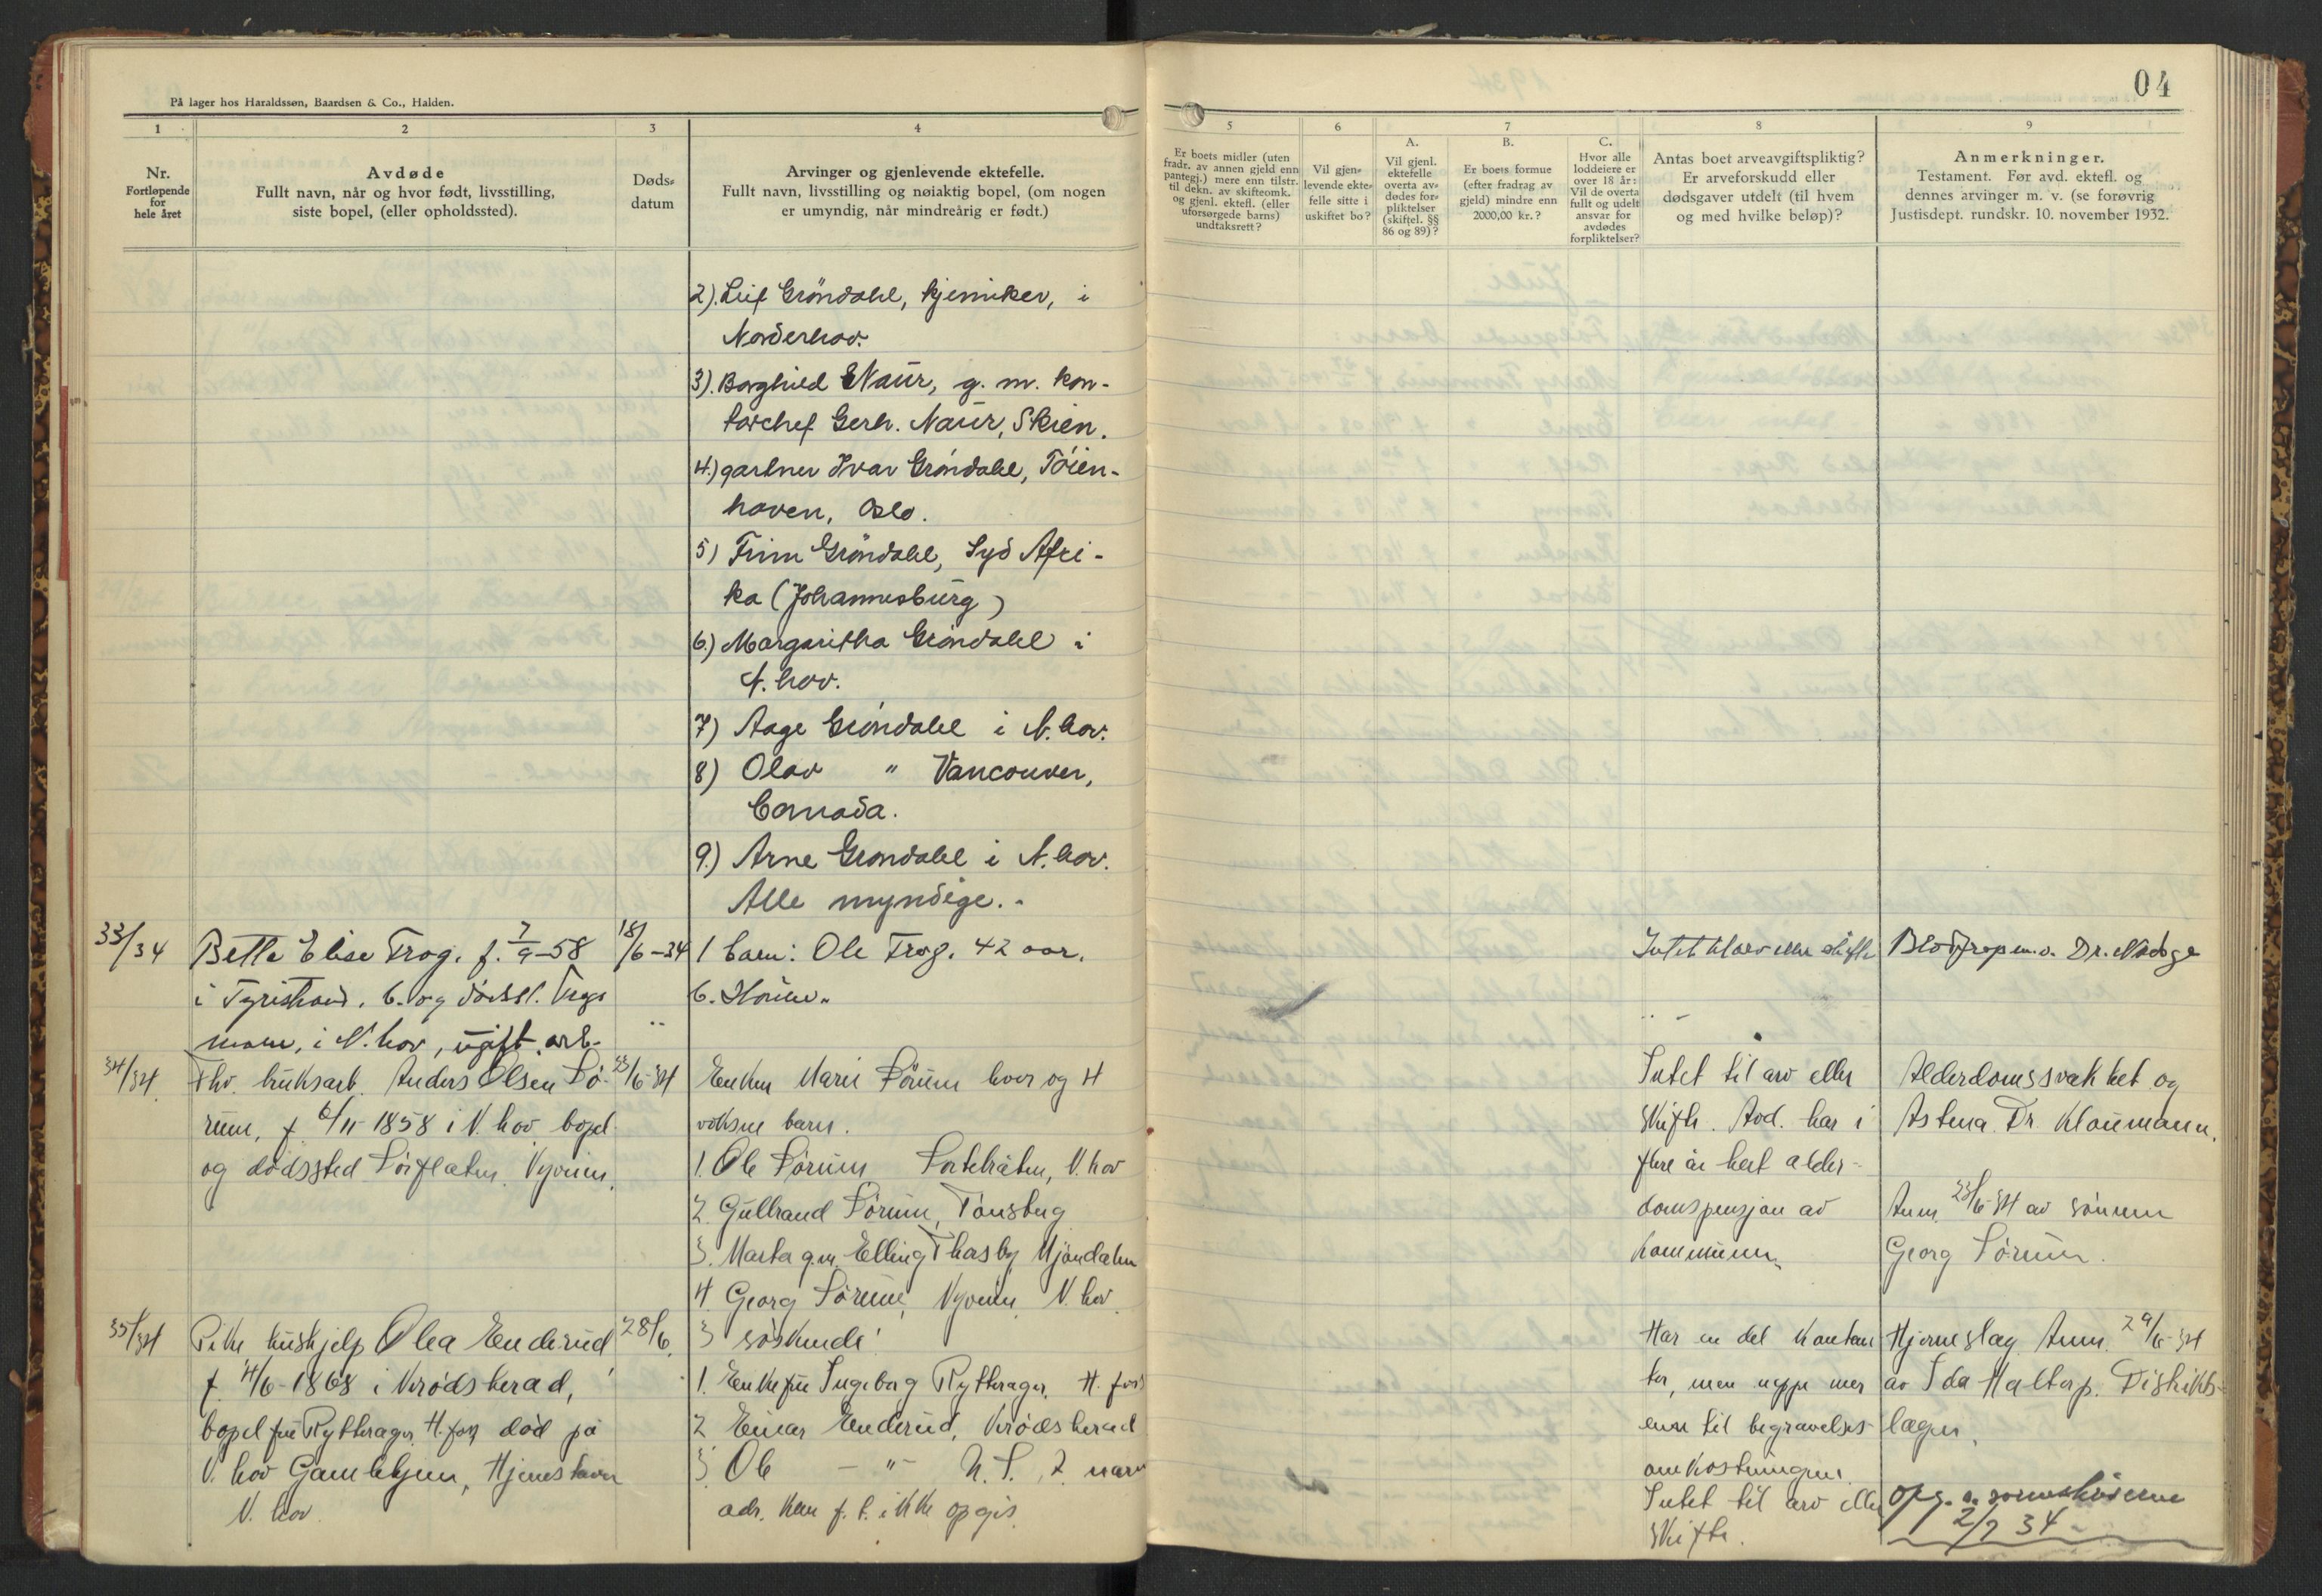 04
På lager hos Haraldssøn, Baardsen & Co., Halden.
1
2
3
4
5
6
7
8
9
Nr.
Fortløpende
for
hele året
Avdøde
Fullt navn, når og hvor født, livsstilling,
siste bopel, (eller opholdssted).
Døds-
datum
Arvinger og gjenlevende ektefelle.
Fullt navn, livsstilling og nøiaktig bopel, (om nogen
er umyndig, når mindreårig er født.)
Er boets midler (uten
fradr. av annen gjeld enn
pantegj.) mere enn tilstr.
til dekn. av skifteomk.
og gjenl. ektefl. (eller
uforsørgede barns)
undtaksrett?
Vil gjen-
levende ekte-
felle sitte i
uskiftet bo?
A.
Vil gjenl.
ektefelle
overta av-
dødes for-
pliktelser
(skiftel. §§
86 og 89)?
B.
Er boets formue
(efter fradrag av
gjeld) mindre enn
2000,00 kr.?
C.
Hvor alle
loddeiere er
over 18 år:
Vil de overta
fullt og udelt
ansvar for
avdødes
forpliktelser?
Antas boet arveavgiftspliktig?
Er arveforskudd eller
dødsgaver utdelt (til hvem
og med hvilke beløp)?
Anmerkninger.
Testament. Før avd. ektefl. og
dennes arvinger m. v. (se forøvrig
Justisdept. rundskr. 10. november 1932.
2). Leif Gröndahl, kjemiker, i
Norderhov.
3). Borghild Naur, g. m. kon-
torchef Gerh. Naur, Skien.
4.) gartner Ivar Gröndahl, Töien-
haven, Oslo.
5) Finn Gröndahl, Syd Afri-
ka (Johannesburg)
6.) Margaritha Gröndahl i
N.hov.
7) Aage Gröndahl i N.hov.
8) Olav " Vancouver,
Canada.
9.) Arne Gröndahl i N.hov.
Alle myndige.-
33/34
Bette Elise Trog. f. 7/9-58
i Tyristrand. b. og dödsst.
moen, i N.hov, ugift arb.
18/6-34
1 barn: Ole Trog. 42 aar.
b.
Intet til arv eller skifte
Dr.
34/34.
Fhv. bruksarb. Anders Olsen Sö-
rum, f 6/11-1858 i N.hov bopel
og dödssted Sörflaten. Vyrim.
23/6-34
Enken Marie Sörum hvor og 4
voksne barn.
1. Ole Sörum Sortebråten, N.hov
2. Gulbrand Sörum, Tönsberg
3. Marta g.m. Elling Thorsby Mjöndalen
4. Georg Sörum, N.hov.
Intet til arv eller
skifte. Avd. har i
flere år hat alder-
domspensjon av
kommunen.
Alderdomssvakhet og
Astma Dr. Klaumann.
Anm. 23/6-34 av sönnen
Georg Sörum.
35/34
Pike hushjelp Olea Enderud
f. 4/6-1868 i Krödsherad,
bopel frue Rytterager, H.foss död på
N.hov Gamlehjem, Hjemstavn
N.hov.
28/6.
3 söskende:
1. Enkefrue Ingeborg Rytterager, H.foss
2 Einar Enderud, Krödsherad
3. Ole -"- U.S.
adr. kan f. t. ikke opgis.
Har en del kontan
ter, men neppe mer
enn til begravelses-
omkostningene.
Intet til arv eller
skifte.
Hjerneslag Anm. 29/6-34
av Ida Halterp. Distrikts-
lægen.
2/7 34